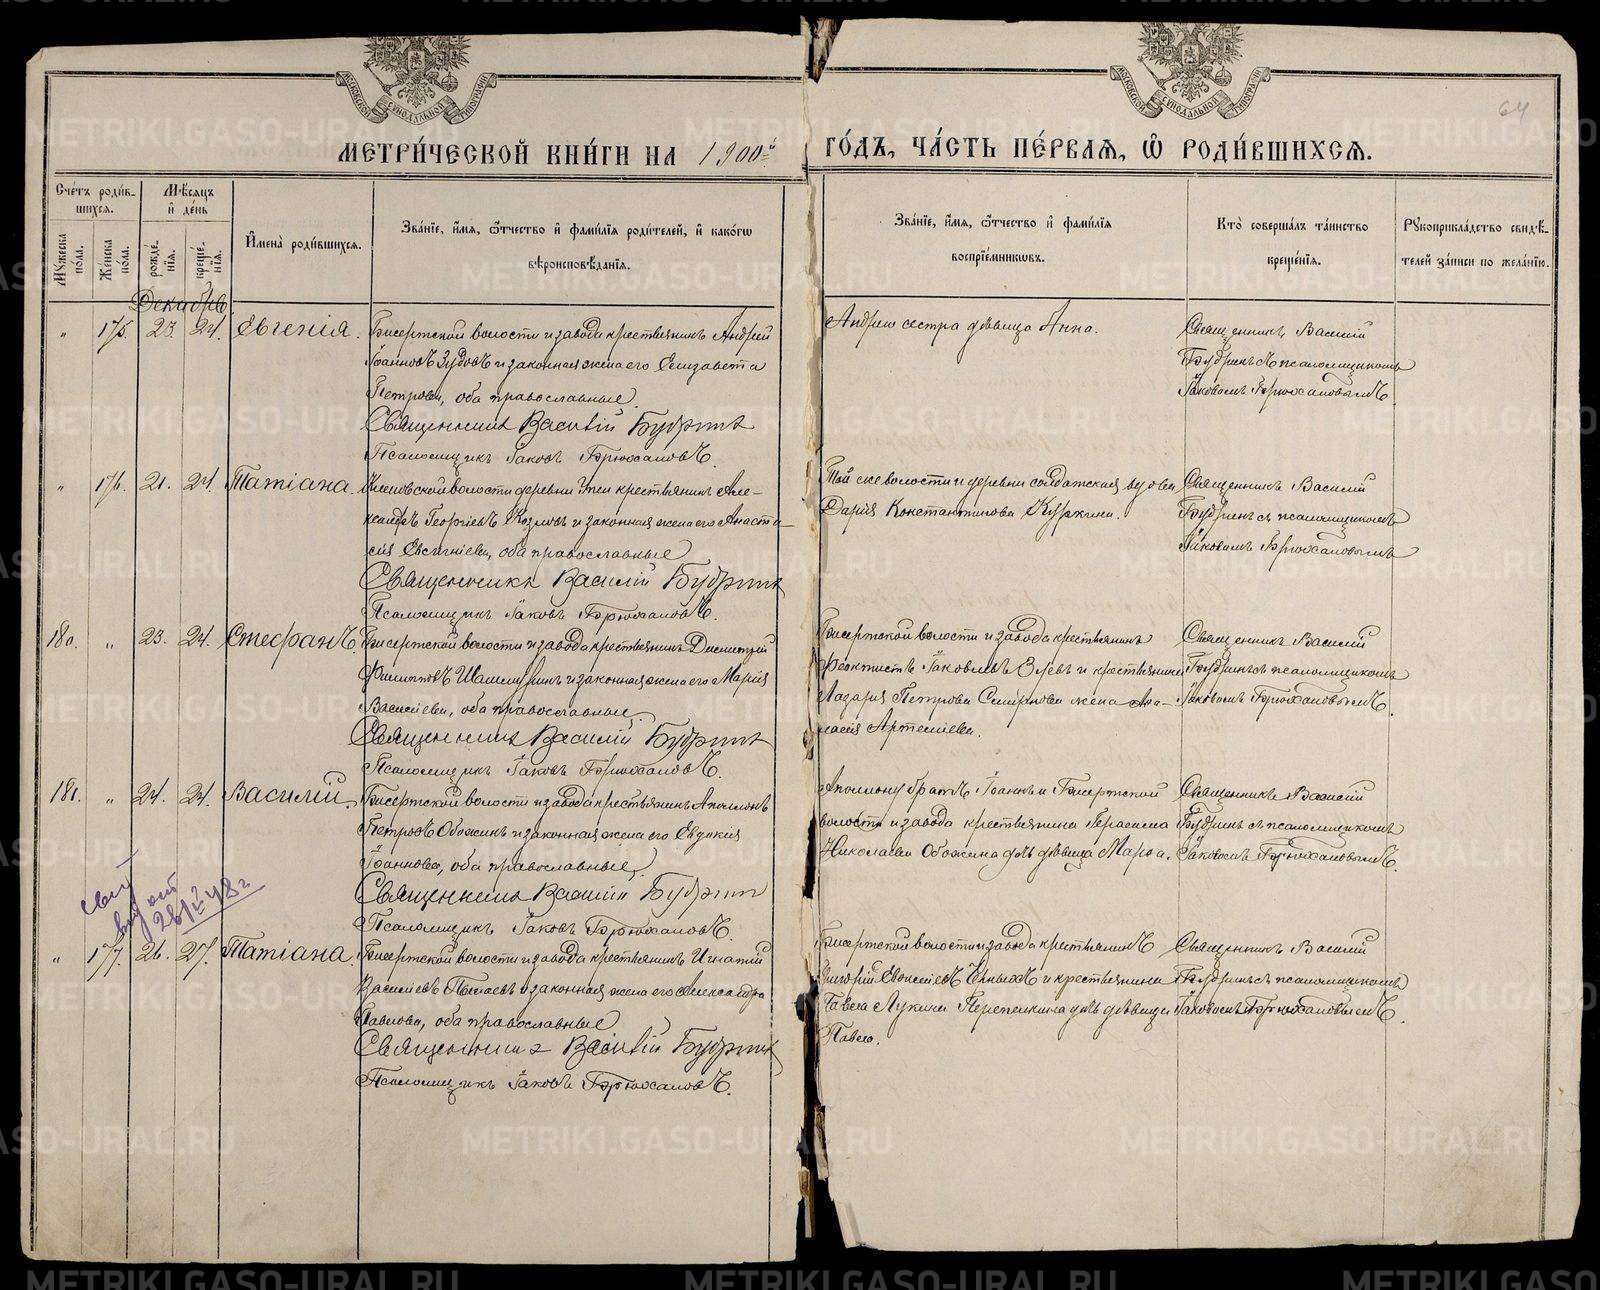 МЕТРИ́ЧЕСКОЙ КНИ́ГИ НА 1900й ГО́ДЪ, ЧА́СТЬ ПЕ́РВАЯ, Ѡ РОДИ́ВШИХСЯ.
64
МОСКОВСКОЙ СУНОДАЛЬНОЙ ТИПОГРАФІИ
МОСКОВСКОЙ СУНОДАЛЬНОЙ ТИПОГРАФІИ
Сче́тъ роди́в-
шихся.
Му́жеска по́ла.
Же́нска по́ла.
Мѣ́сяцъ
и҆ де́нь
рожде́-
нїя.
креще́-
нїя.
И҆мена̀ роди́вшихся.
Зва́нїе, и҆́мя, ѻ҆́тчество и҆ фами́лїя роди́телей, и҆ како́гѡ
вѣроисповѣ́данїя.
Зва́нїе, и҆́мя, ѻ҆́тчество и҆ фами́лїя
воспрїе́мникѡвъ.
Кто̀ соверша́лъ та́инство
креще́нїя.
Рꙋкоприкла́дство свидѣ́-
телей за́писи по жела́нїю.
Декабрь
" 175. 23. 24. Евгенія.
Бисертской волости и завода крестьянинъ Андрей
Іоанновъ Зудовъ и законная жена его Елизавета
Петрова, оба православные
Священникъ Василій Будринъ
Псаломщикъ Іаковъ Брюхановъ.
Андрею сестра дѣвица Анна.
Священникъ Василій
Будринъ съ псаломщикомъ
Іаковомъ Брюхановымъ.
" 176. 21. 24. Татіана.
Кленовской волости деревни крестьянинъ Але-
ксандръ Георгіевъ Козловъ и законная жена его Анаста-
сія Евсигніева, оба православные
Священникъ Василій Будринъ
Псаломщикъ Іаковъ Брюхановъ.
Той же волости и деревни солдатская вдова
Дарія Константинова
Священникъ Василій
Будринъ съ псаломщикомъ
Іаковомъ Брюхановымъ
180. " 23. 24. Стефанъ.
Бисертской волости и завода крестьянинъ Димитрій
Филипповъ и законная жена его Марія
Василіева, оба православные.
Священникъ Василій Будринъ
Псаломщикъ Іаковъ Брюхановъ.
Бисертской волости и завода крестьянинъ
Феоктистъ Іаковлевъ и крестьянина
Лазаря Петрова Смирнова жена Ана-
стасія Артеміева.
Священникъ Василій
Будринъ съ псаломщикомъ
Іаковомъ Брюхановымъ.
181. " 24. 24. Василій.
Бисертской волости и завода крестьянинъ Аполлонъ
Петровъ Обожинъ и законная жена его Евдокія
Іоаннова, оба православные
Священникъ Василій Будринъ
Псаломщикъ Іаковъ Брюхановъ.
Аполлону братъ Іоаннъ и Бисертской
волости и завода крестьянина Герасима
Николаева Обожина дочь дѣвица Марѳа.
Священникъ Василій
Будринъ съ псаломщикомъ
Іаковомъ Брюхановымъ.
48 г
" 177. 26. 27. Татіана.
Бисертской волости и завода крестьянинъ Игнатій
Василіевъ и законная жена его Александра
Павлова, оба православные
Священникъ Василій Будринъ
Псаломщикъ Іаковъ Брюхановъ.
Бисертской волости и завода крестьянинъ
Григорій Черныхъ и крестьянина
Павла Лукина дочь дѣвица
Павла.
Священникъ Василій
Будринъ съ псаломщикомъ
Іаковомъ Брюхановымъ.
METRIKI.GASO-URAL.RU